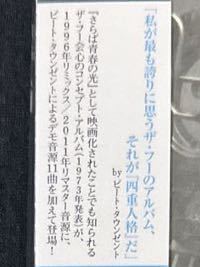 「私が最も誇りに思うザ・フーのアルバム、
それが『四重人格』だ」
by ピート・タウンゼント
『さらば青春の光』として映画化されたことでも知られる
ザ・フー会心のコンセプト・アルバム(1973年発表)が、
1996年リミックス/2011年リマスター音源に、
ピート・タウンゼントによるデモ音源11曲を加えて登場!